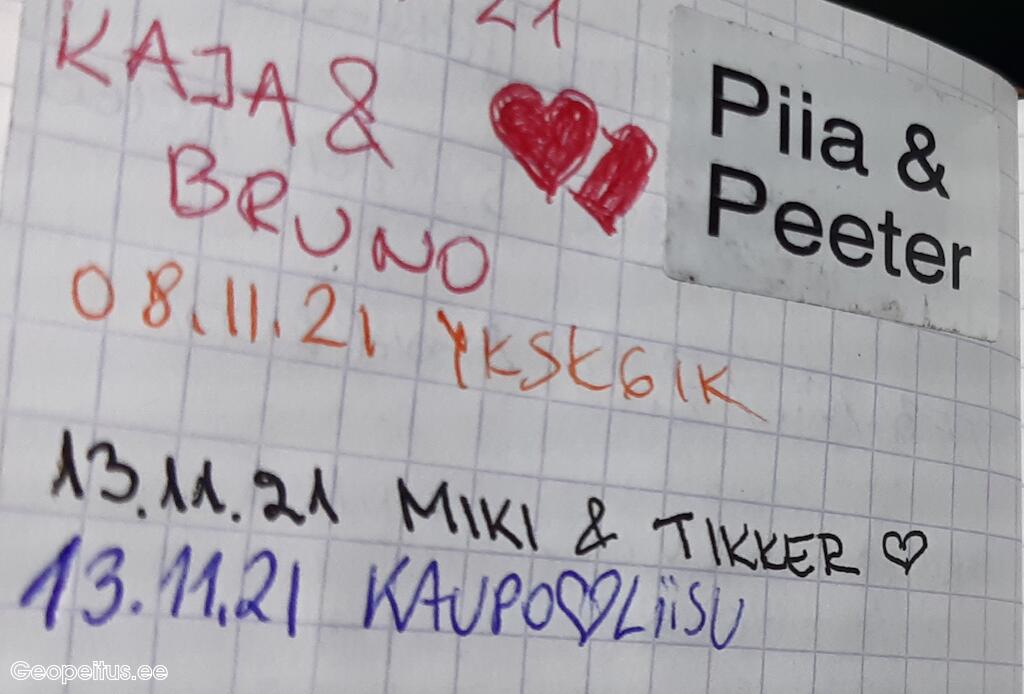 21
KAJA &
BRUNO
Piia &
Peeter
08.11.21 YKSKSIK
13.11.21 MIKI & TIKKER ♡
13.11.21 KAUPO♡LiiSU
Geopeitus.ee